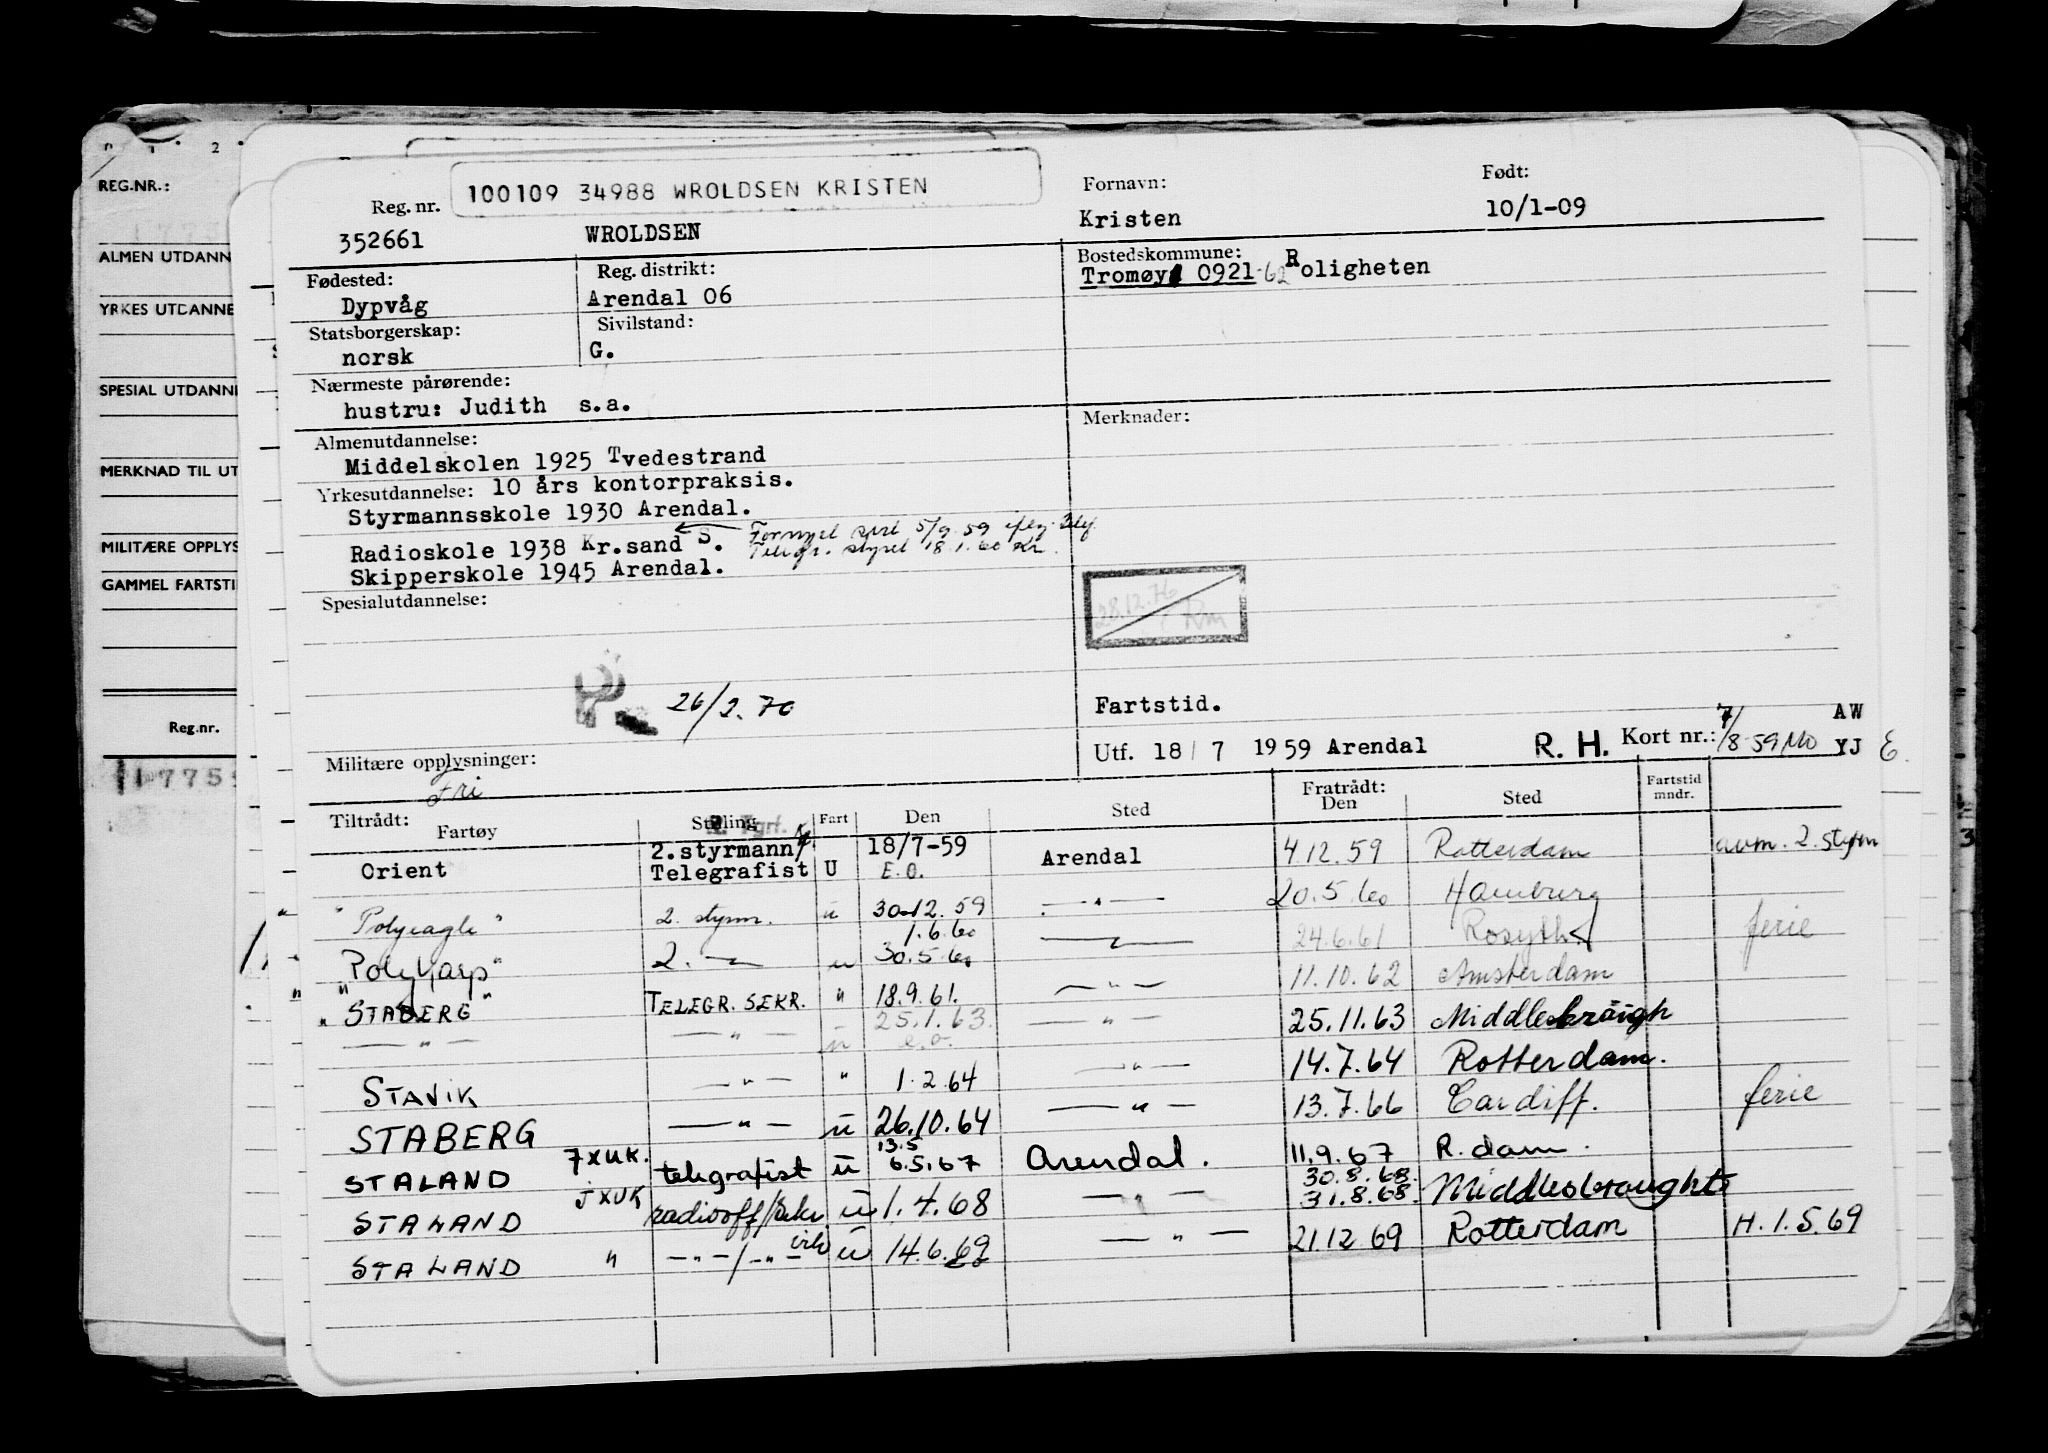 REG.NR.:
ALMEN UTDANN
YRKES UTDANNE
SPESIAL UTDANNE
MERKNAD TIL UT
MILITÆRE OPPLYS
GAMMEL FARTSTI
Reg.nr.
100109 34988 WROLDSEN KRISTEN
Reg. nr. 352661
WROLDSEN
Fornavn: Kristen
Født: 10/1-09
Fødested: Dypvåg
Reg. distrikt: Arendal 06
Bostedskommune: Tromøy 0921-62 Roligheten
Statsborgerskap: norsk
Sivilstand: G.
Nærmeste pårørende:
hustru: Judith s.a.
Merknader:
Almenutdannelse:
Middelskolen 1925 Tvedestrand
Yrkesutdannelse: 10 års kontorpraksis.
Styrmannsskole 1930 Arendal.
Radioskole 1938 Kr.sand S.
Telegr. styret 18.1.60 Kr.
Skipperskole 1945 Arendal.
Spesialutdannelse:
28.12.76 Rm
26/2.70
Fartstid.
Utf. 18/7 1959 Arendal R. H. Kort nr.: 7/8-59 Mo AW YJ E.
Militære opplysninger:
Fri
Tiltrådt: Fartøy Stilling Fart Den Sted Fratrådt: Den Sted Fartstid mndr.
Orient 2.styrmann/Telegrafist U 18/7-59 E.O. Arendal 4 12.59 Rotterdam avm. 2. styrm
"Polyeagle" 2. styrm. u 30.12.59 — " — 20.5.60 Hamburg
1.6.60
"Polykarp" 2. — " — u 30.5.60 — " — 24.6.61 Rosyth ferie
"STABERG" TELEGR. SEKR. " 18.9.61. — " — 11.10.62 Amsterdam
— " — — " — u 25.1.63. e.o. — " — 25.11.63 Middlesbraugh
STAVIK — " — " 1.2.64 — " — 14.7.64 Rotterdam.
STABERG — " — u 26.10.64 — " — 13.7.66 Cardiff. ferie
13.5
STALAND JXUK. telegrafist u 6.5.67 Arendal. 11.9.67 R.dam.
30.8.68.
STALAND JXUK radiooff/sekr. u 1.4.68 — " — 31.8.68. Middlesbraught
STALAND " — " — / — " — u 14.6.69 — " — 21.12.69 Rotterdam H. 1.5.69